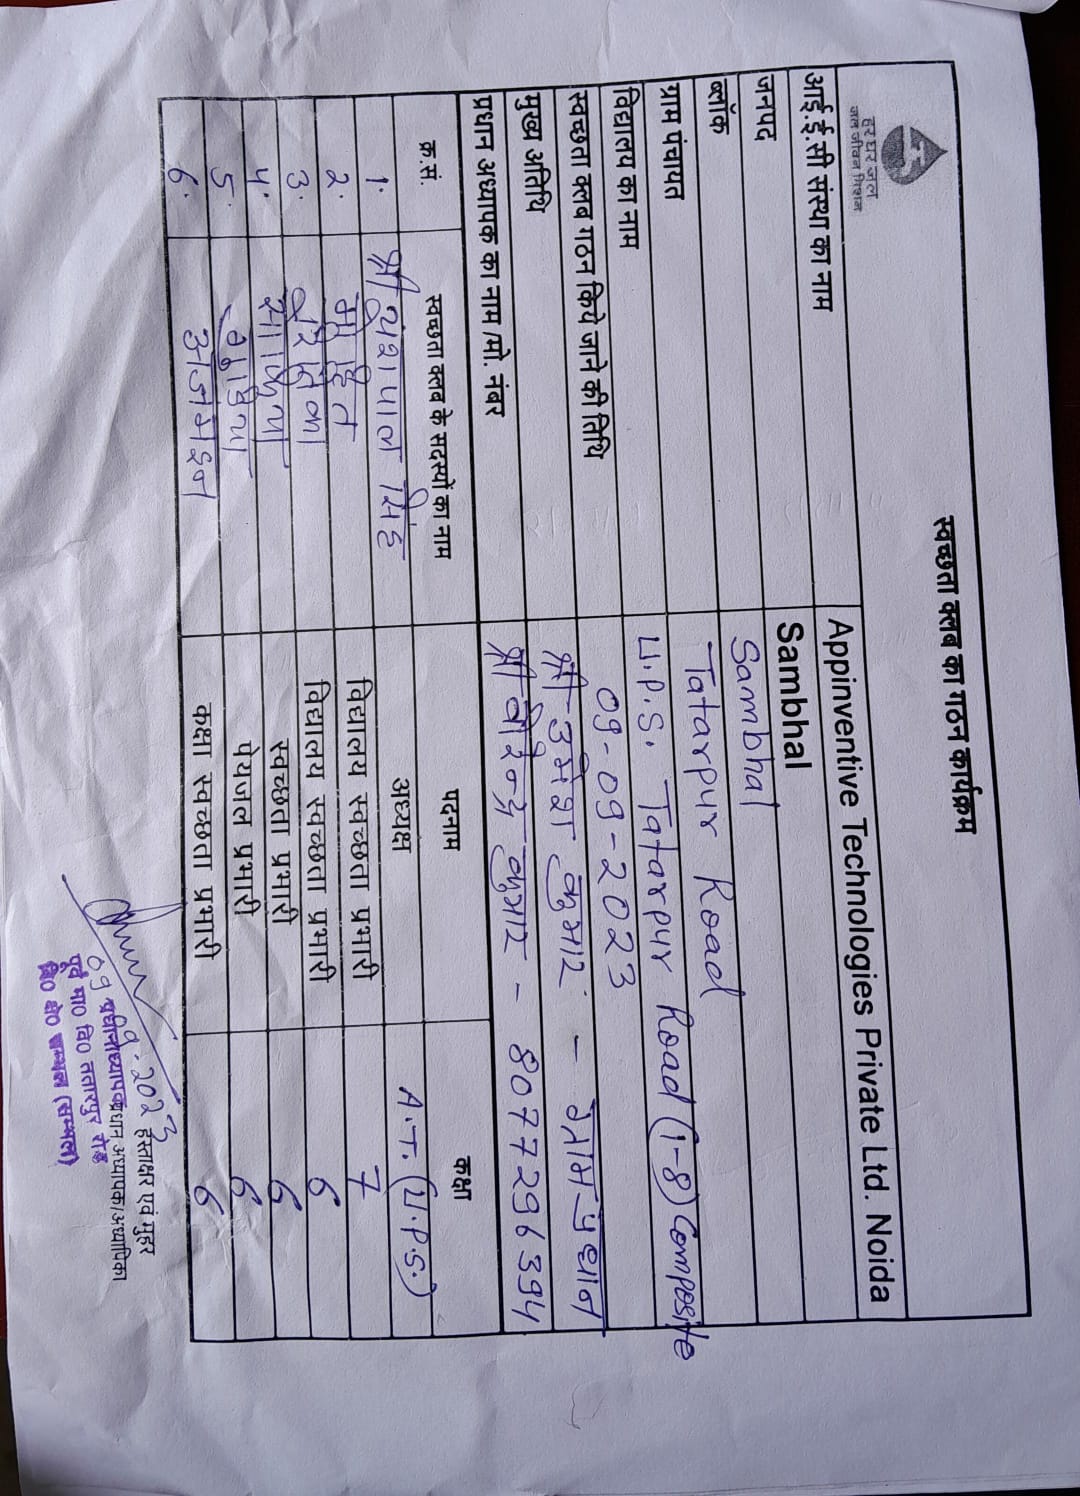 स्वच्छता क्लब का गठन कार्यक्रम
हर घर जल
जल जीवन मिशन
आई.ई.सी संस्था का नाम Appinventive Technologies Private Ltd. Noida
जनपद Sambhal
ब्लॉक Sambhal
ग्राम पंचायत Tatarpur Road
विद्यालय का नाम U.P.S. Tatarpur Road (1-8) Composite
स्वच्छता क्लब गठन किये जाने की तिथि 09-09-2023
मुख्य अतिथि श्री उमेश कुमार - ग्राम प्रधान
प्रधान अध्यापक का नाम /मो. नंबर श्री वीरेन्द्र कुमार - 8077296394
क्र.सं. स्वच्छता क्लब के सदस्यों का नाम पदनाम कक्षा
1. श्री यशपाल सिंह अध्यक्ष A.T. (U.P.S.)
2. मोहित विद्यालय स्वच्छता प्रभारी 7
3. विद्यालय स्वच्छता प्रभारी 6
4. स्वच्छता प्रभारी 6
5. पेयजल प्रभारी 6
6. कक्षा स्वच्छता प्रभारी 6
09-09-2023
हस्ताक्षर एवं मुहर
प्रधान अध्यापक/अध्यापिका
प्रधानाध्यापक
पूर्व मा० वि० ततारपुर रोड
वि० क्षे० सम्भल (सम्भल)